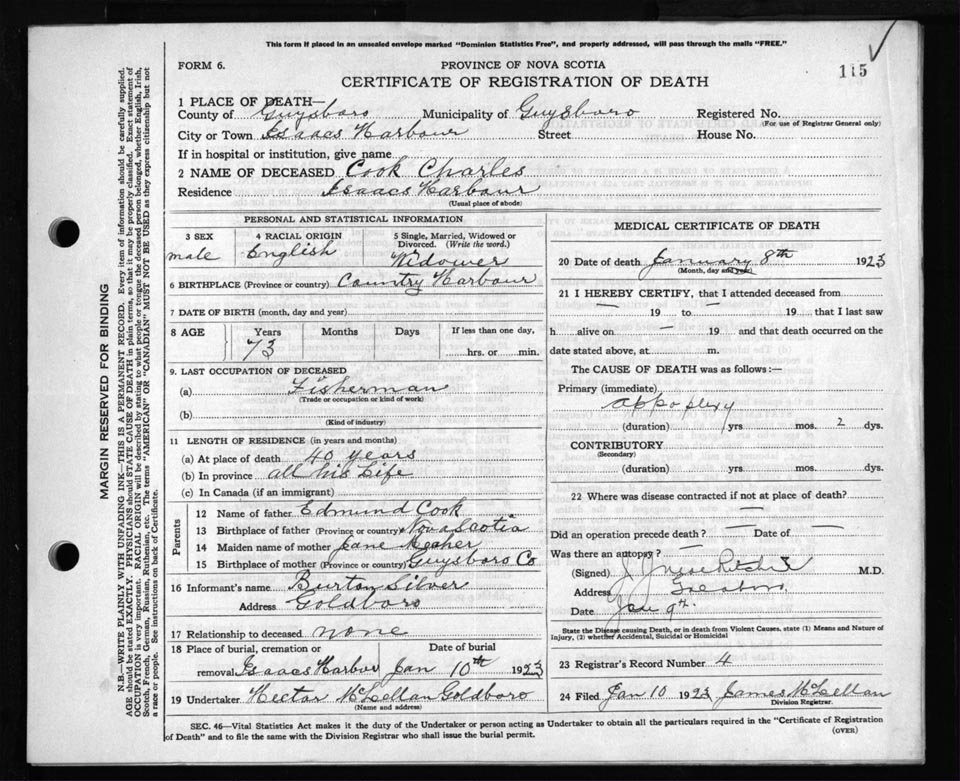 This form if placed in an unsealed envelope marked "Dominion Statistics Free", and properly addressed, will pass through the mails "FREE."
FORM 6.
PROVINCE OF NOVA SCOTIA
115
CERTIFICATE OF REGISTRATION OF DEATH
1 PLACE OF DEATH—
County of Guysboro Municipality of Guysboro Registered No.
(For use of Registrar General only)
City or Town Isaacs Harbour Street House No.
If in hospital or institution, give name
2 NAME OF DECEASED Cook Charles
Residence Isaacs Harbour
(Usual place of abode)
PERSONAL AND STATISTICAL INFORMATION
3 SEX 4 RACIAL ORIGIN 5 Single, Married, Widowed or Divorced. (Write the word.)
male English Widower
6 BIRTHPLACE (Province or country) Country Harbour
7 DATE OF BIRTH (month, day and year)
8 AGE Years Months Days If less than one day,
73 hrs. or min.
9. LAST OCCUPATION OF DECEASED
(a) Fisherman
(Trade or occupation or kind of work)
(b)
(Kind of industry)
11 LENGTH OF RESIDENCE (in years and months)
(a) At place of death 40 years
(b) In province all his Life
(c) In Canada (if an immigrant)
Parents
12 Name of father Edmund Cook
13 Birthplace of father (Province or country) Nova Scotia
14 Maiden name of mother Jane
15 Birthplace of mother (Province or country) Guysboro Co
16 Informant's name Burton Silver
Address Goldboro
17 Relationship to deceased none
18 Place of burial, cremation or Date of burial
removal Isaacs Harbor Jan 10th 1923
19 Undertaker Hector McLellan Goldboro
(Name and address)
MEDICAL CERTIFICATE OF DEATH
20 Date of death January 8th 1923
(Month, day and year)
21 I HEREBY CERTIFY, that I attended deceased from
— 19 to — 19 that I last saw
h alive on — 19 and that death occurred on the
date stated above, at m.
The CAUSE OF DEATH was as follows:—
Primary (immediate)
appoplexy
(duration) yrs mos. 2 dys.
CONTRIBUTORY
(Secondary)
(duration) yrs. mos. dys.
22 Where was disease contracted if not at place of death?
—
Did an operation precede death? — Date of
Was there an autopsy? —
(Signed) J. M.D.
Address
Date Jan 9th.
State the Disease causing Death, or in death from Violent Causes, state (1) Means and Nature of
Injury, (2) whether Accidental, Suicidal or Homicidal
23 Registrar's Record Number 4
24 Filed Jan 10 1923 James McLellan
Division Registrar.
SEC. 46—Vital Statistics Act makes it the duty of the Undertaker or person acting as Undertaker to obtain all the particulars required in the "Certificate of Registration
of Death" and to file the same with the Division Registrar who shall issue the burial permit.
(OVER)
MARGIN RESERVED FOR BINDING
N.B.—WRITE PLAINLY WITH UNFADING INK—THIS IS A PERMANENT RECORD. Every item of information should be carefully supplied.
AGE should be stated EXACTLY. PHYSICIANS should STATE CAUSE OF DEATH in plain terms, so that it may be properly classified. Exact statement of
OCCUPATION is very important. RACIAL ORIGIN will be described by stating to what people or tongue the deceased person belonged, whether English, Irish,
Scotch, French, German, Russian, Ruthenian, etc. The terms "AMERICAN" OR "CANADIAN" MUST NOT BE USED as they express citizenship but not
a race or people. See instructions on back of Certificate.